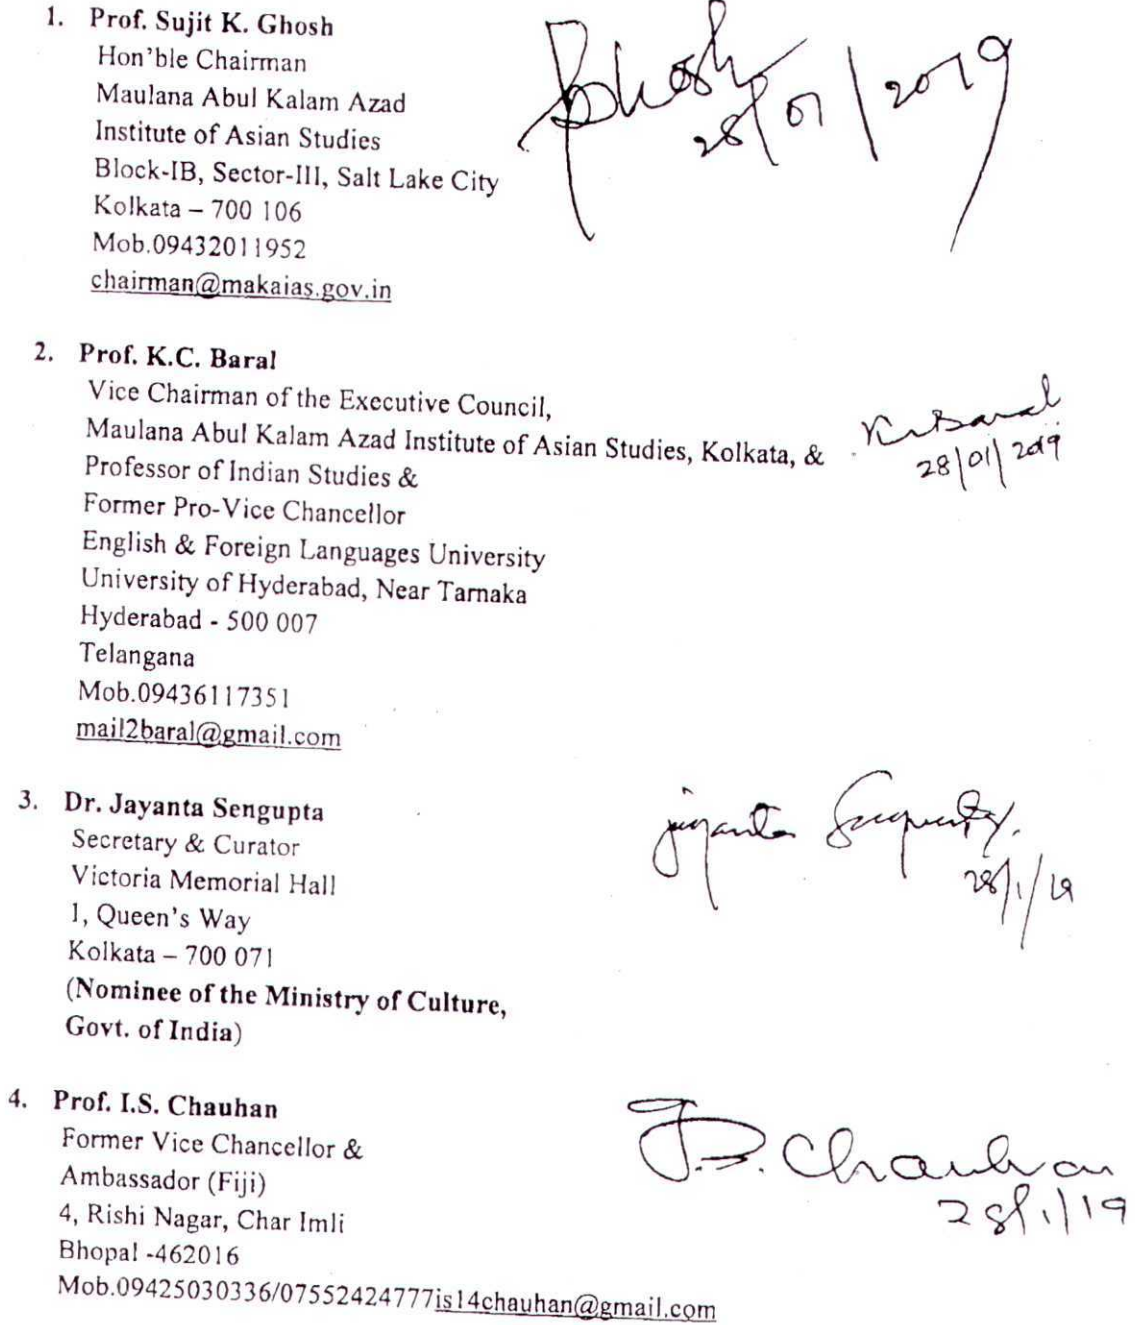 1. Prof. Sujit K. Ghosh
Hon'ble Chairman
Maulana Abul Kalam Azad
Institute of Asian Studies
Block-IB, Sector-III, Salt Lake City
Kolkata – 700 106
Mob.09432011952
chairman@makaias.gov.in
Ghosh
28/01/2019
2. Prof. K.C. Baral
Vice Chairman of the Executive Council,
Maulana Abul Kalam Azad Institute of Asian Studies, Kolkata, &
Professor of Indian Studies &
Former Pro-Vice Chancellor
English & Foreign Languages University
University of Hyderabad, Near Tarnaka
Hyderabad - 500 007
Telangana
Mob.09436117351
mail2baral@gmail.com
KcBaral
28/01/2019
3. Dr. Jayanta Sengupta
Secretary & Curator
Victoria Memorial Hall
1, Queen's Way
Kolkata – 700 071
(Nominee of the Ministry of Culture,
Govt. of India)
Jayanta Sengupta.
28/1/19
4. Prof. I.S. Chauhan
Former Vice Chancellor &
Ambassador (Fiji)
4, Rishi Nagar, Char Imli
Bhopal -462016
Mob.09425030336/07552424777is14chauhan@gmail.com
I.S. Chauhan
28/1/19